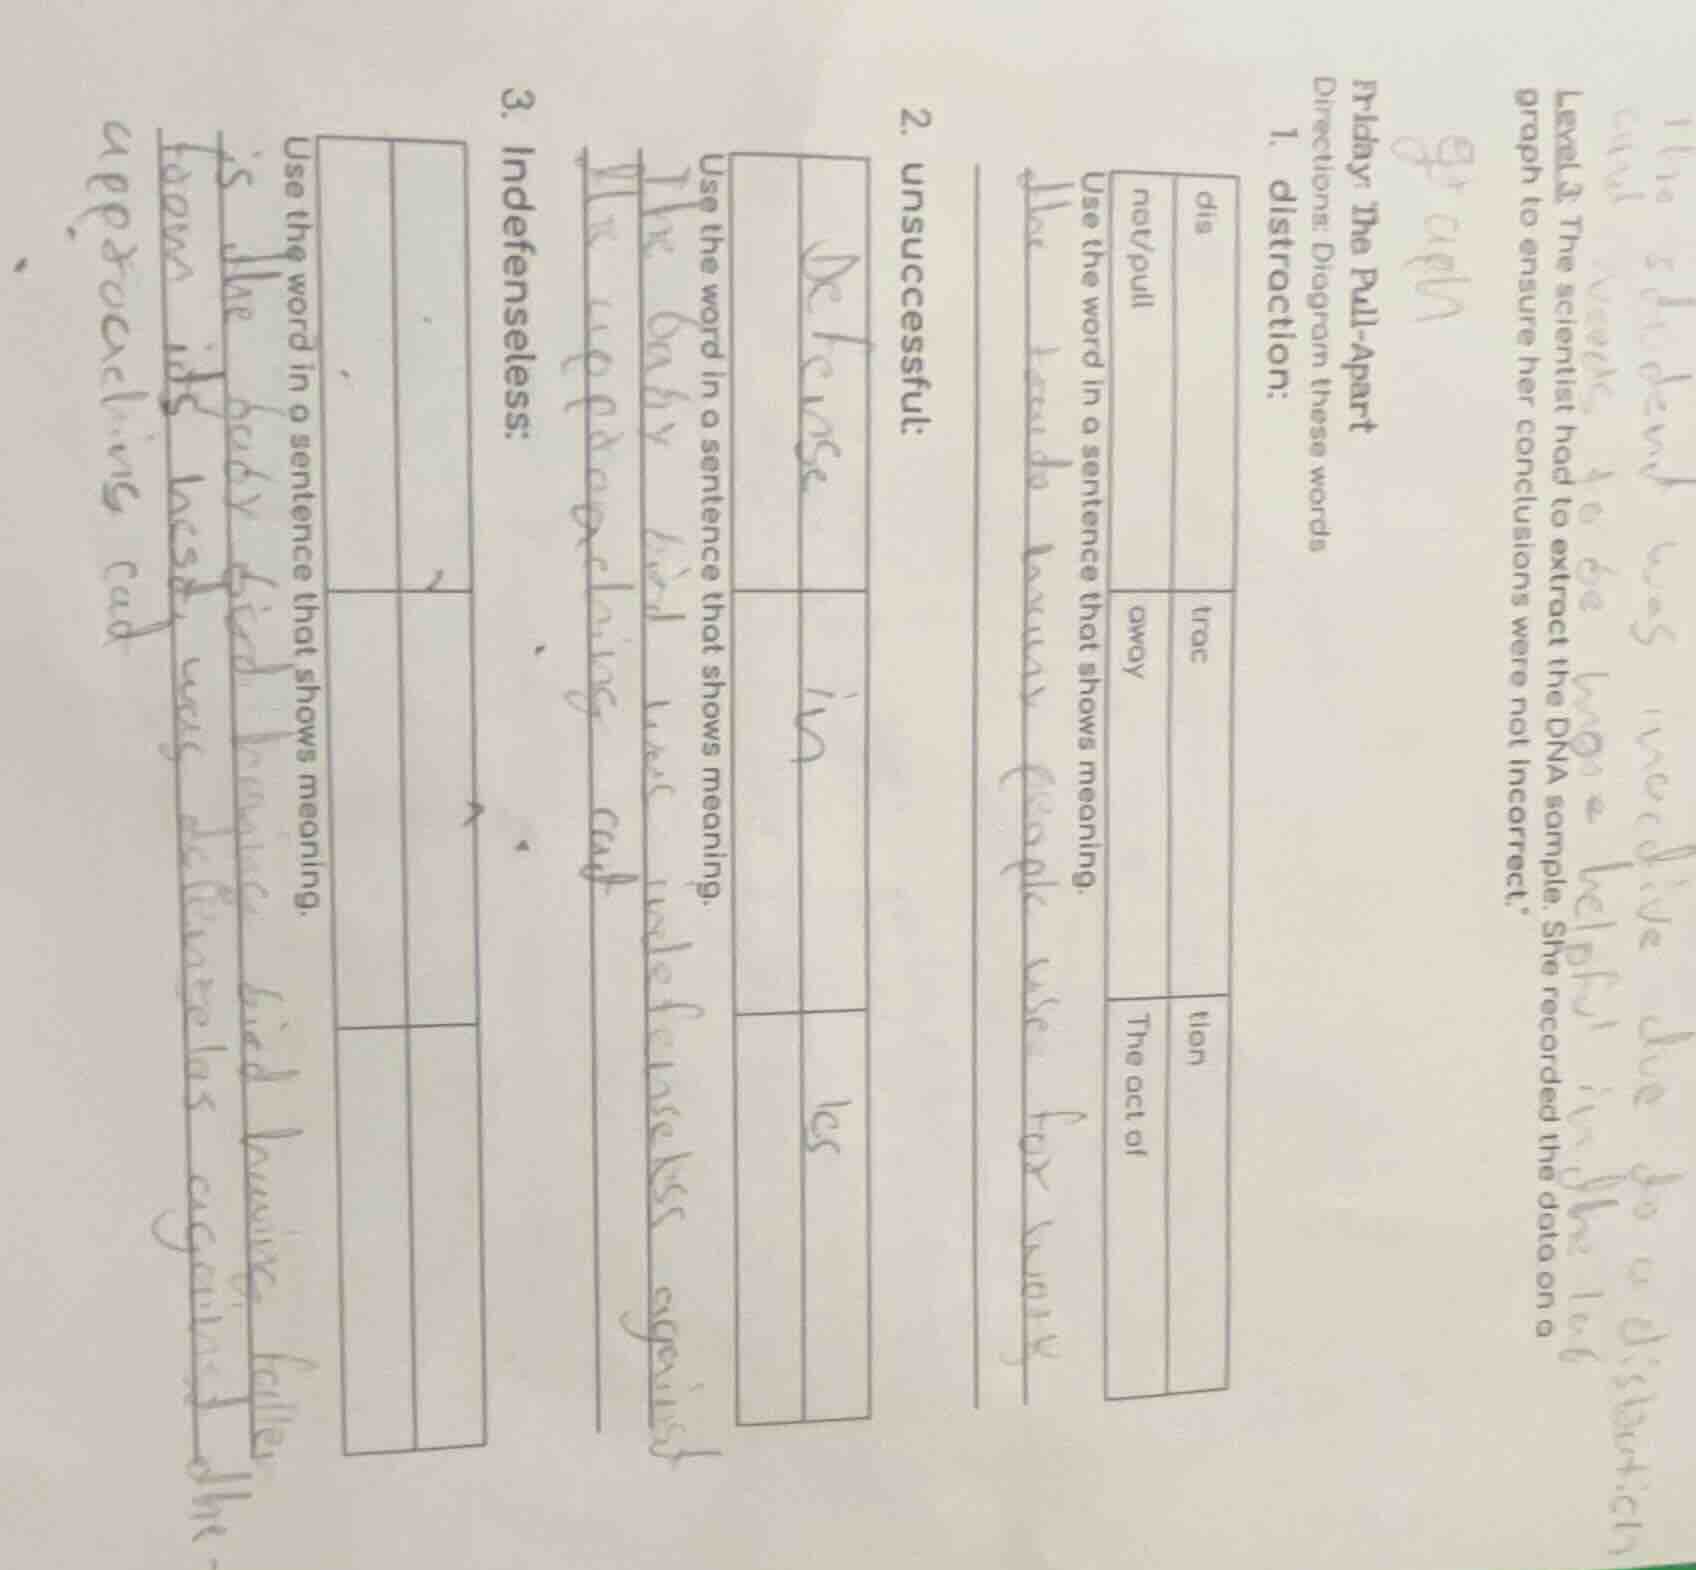 The student was inactive due to a distraction
and needs to be more helpful in the lab
Level 3: The scientist had to extract the DNA sample. She recorded the data on a
graph to ensure her conclusions were not incorrect."
graph
Friday: The Pull-Apart
Directions: Diagram these words
1. distraction:
dis trac tion
not/pull away The act of
Use the word in a sentence that shows meaning.
the many people use for work
2. unsuccessful:
Defense in les
Use the word in a sentence that shows meaning.
The baby bird was indefenseless against
the approaching cat
3. Indefenseless:
Use the word in a sentence that shows meaning.
is the baby bird bird having fallen
from its nest, was against the
approaching cat